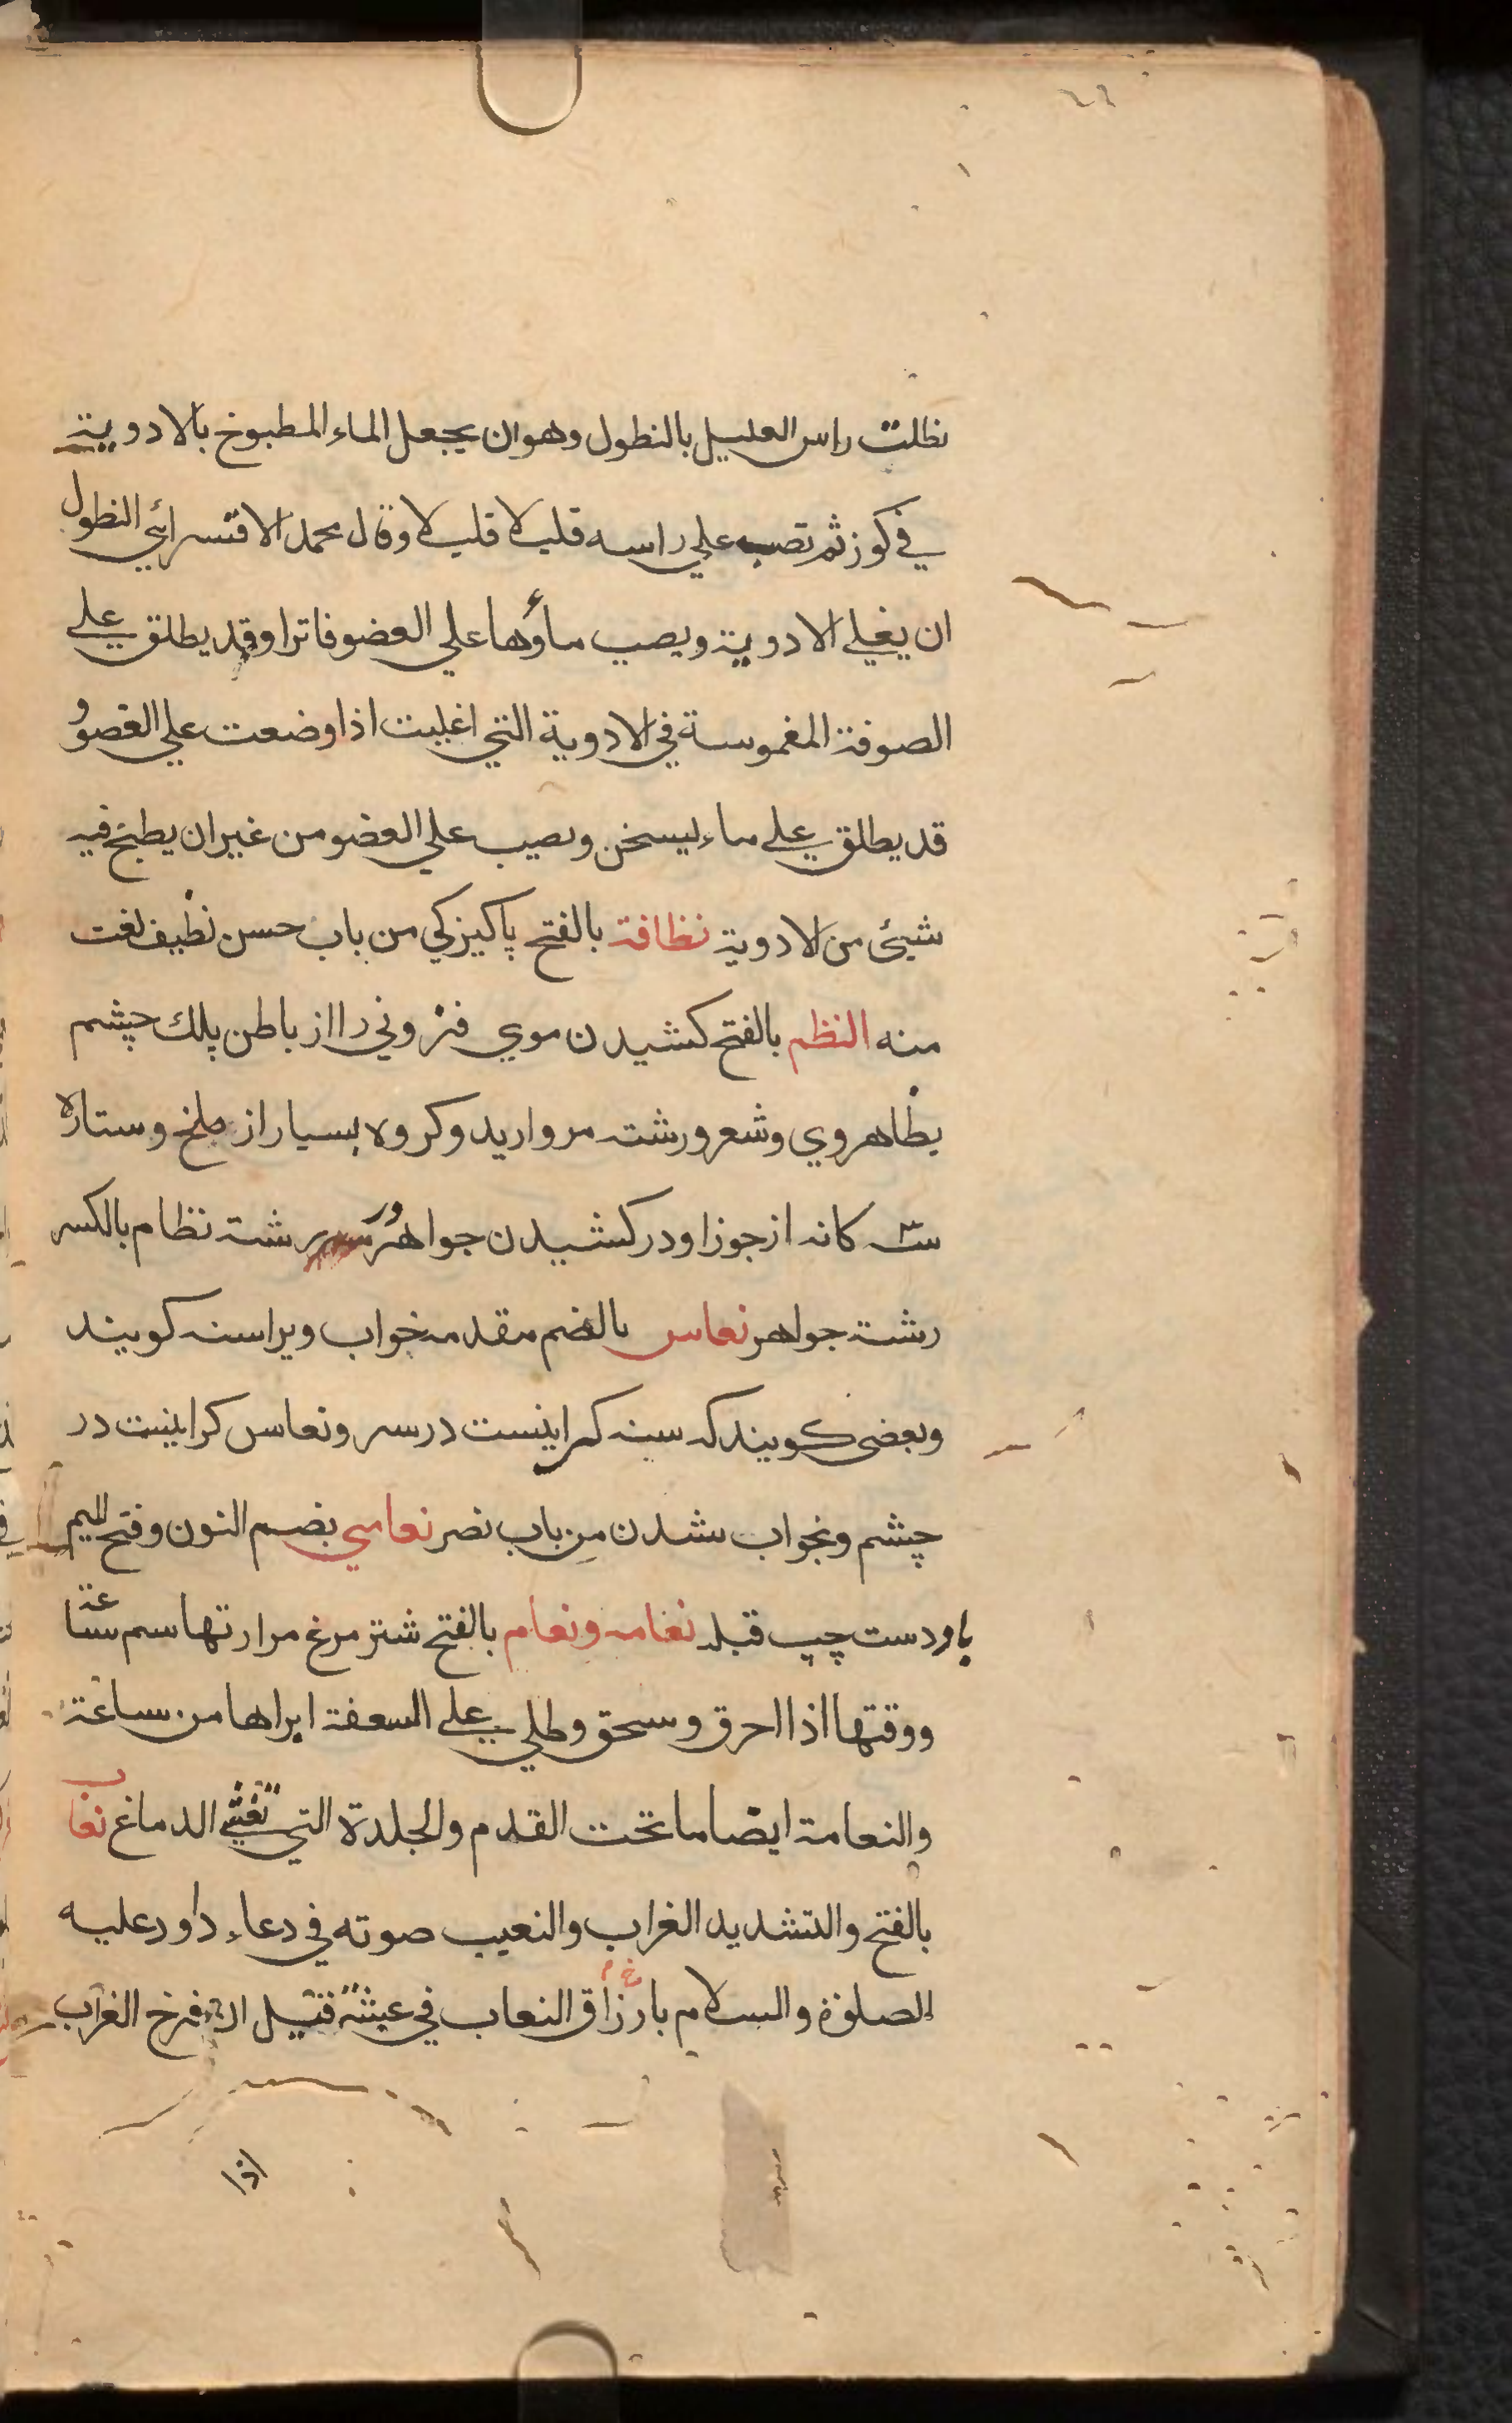 نطلت راس العليل بالنطول وهو ان يجعل الماء المطبوخ بالادوية
في كوز ثم تصب علي راسه قليلا قليلا وقال محمد الاقسرائي النطول
ان يغلي الادوية ويصب ماؤها علي العضو فاترا وقد يطلق علي
الصوفة المغموسة في الادوية التي اغليت اذا وضعت علي العضو و
قد يطلق علي ماء يسخن ويصب علي العضو من غير ان يطبخ فيه
شيئ من الادوية نظافة بالفتح پاكيزكي من باب حسن نظيف نعت
منه النظم بالفتح كشيدن موي فزوني را از باطن پلك چشم
بظاهر وي وشعر ورشته مرواريد وكروه بسيار از ملخ وستاره
سه كانه از جوزا ودر كشيدن جواهر در رشته نظام بالكسر
رشته جواهر نعاس بالضم مقدمه خواب ويراسنه كويند
وبعضي كويند كه سنه كرانيست در سر ونعاس كرانيست در
چشم وبخواب شدن من باب نصر نعامي بضم النون وفتح الميم
باد دست چپ قبله نعامه ونعام بالفتح شتر مرغ مرارتها سم ساعة
ووقتها اذا احرق وسحق وطلي علي السعفة ابراها من ساعة
والنعامة ايضا ما تحت القدم والجلدة التي تغشي الدماغ نعاب
بالفتح والتشديد الغراب والنعيب صوته في دعاء داود عليه
الصلوة والسلام يا رازق النعاب في عشه قيل ان فرخ الغراب
اذا